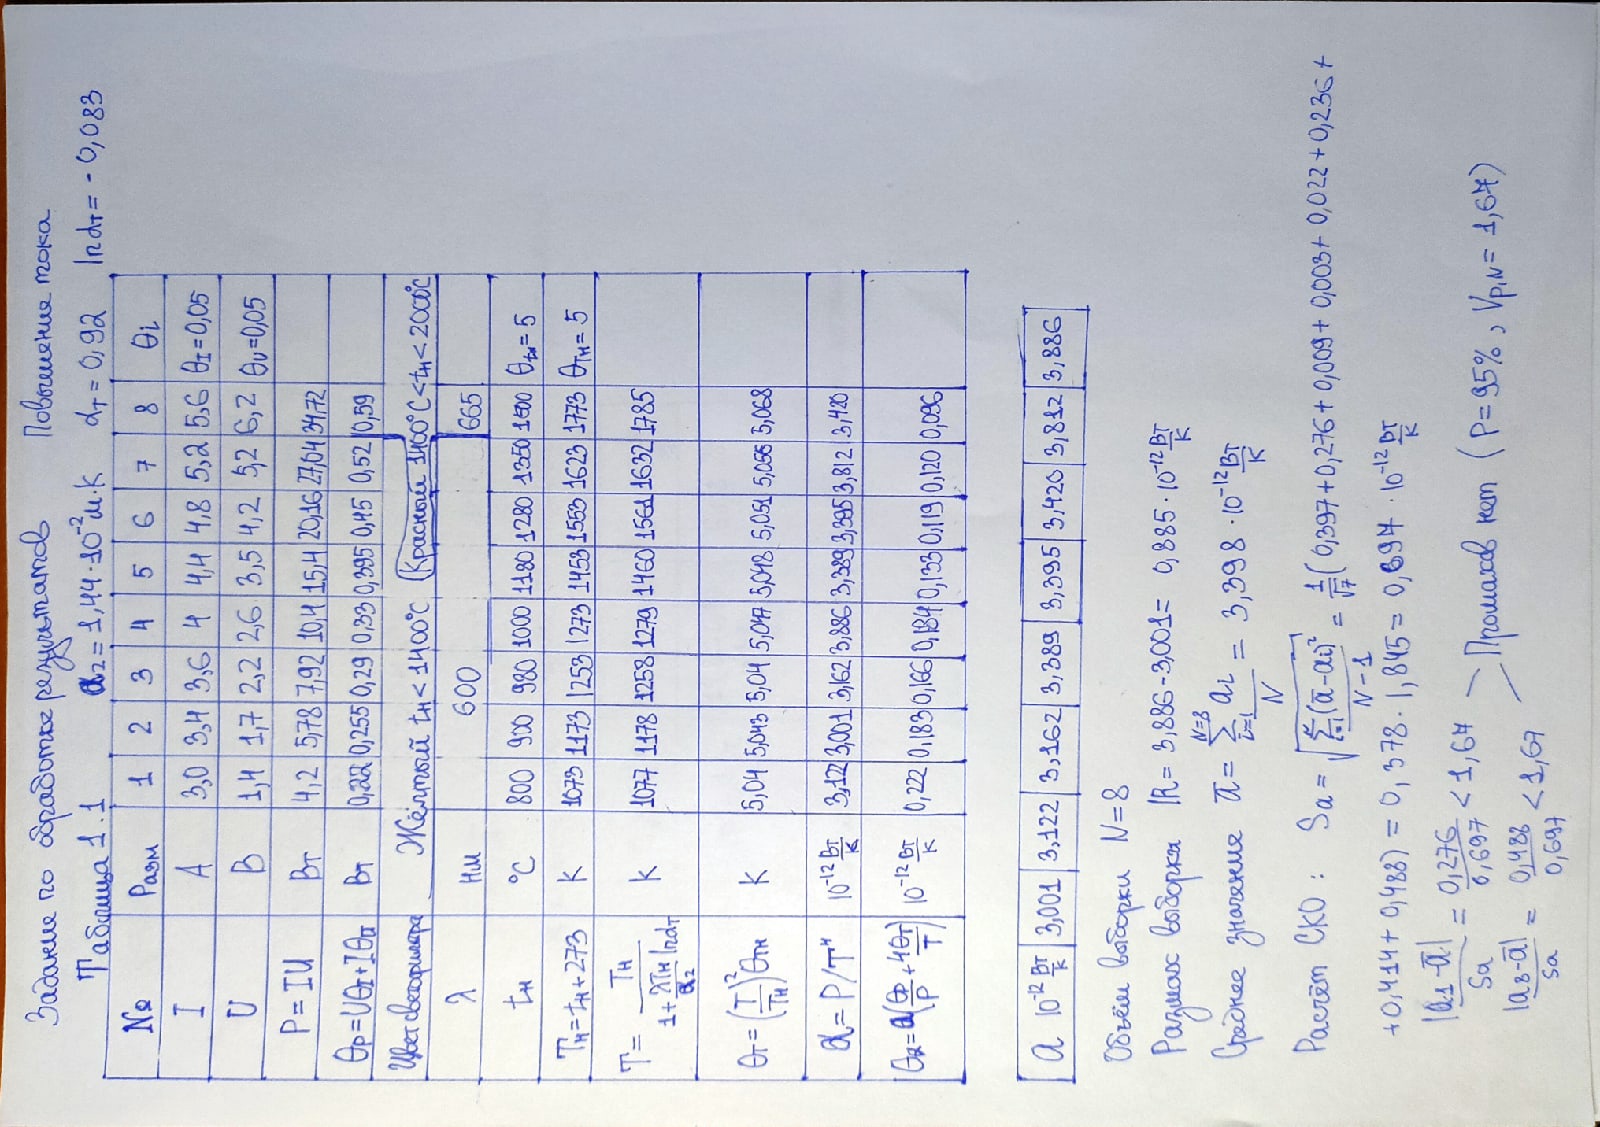 Задание по обработке результатов Повышение тока
Таблица 1.1 a₂ = 1,44·10⁻² м·К α_T = 0,92 lnα_T = - 0,083
№ Разм 1 2 3 4 5 6 7 8 θi
I А 3,0 3,4 3,6 4 4,4 4,8 5,2 5,6 θ_I=0,05
U В 1,4 1,7 2,2 2,6 3,5 4,2 5,2 6,2 θ_U=0,05
P = IU Вт 4,2 5,78 7,92 10,4 15,4 20,16 27,04 34,72
θ_P=Uθ_I+Iθ_U Вт 0,22 0,255 0,29 0,33 0,395 0,45 0,52 0,59
Цвет светофильтра Жёлтый t_н < 1400°C Красный 1400°C < t_н < 2000°C
λ нм 600 665
t_н °C 800 900 980 1000 1180 1280 1350 1500 θ_tн = 5
T_н = t_н + 273 К 1073 1173 1253 1273 1453 1553 1623 1773 θ_Tн = 5
T = T_н / (1 + (λT_н/a₂) lnα_T) К 1077 1178 1258 1279 1460 1561 1632 1785
θ_T = (T/T_н)² θ_Tн К 5,04 5,043 5,04 5,047 5,048 5,051 5,055 5,068
α = P/T⁴ 10⁻¹² Вт/К 3,122 3,001 3,162 3,886 3,389 3,395 3,812 3,420
θ_α = α(θ_P/P + 4θ_T/T) 10⁻¹² Вт/К 0,22 0,183 0,166 0,184 0,133 0,119 0,120 0,096
a 10⁻¹² Вт/К 3,001 3,122 3,162 3,389 3,395 3,420 3,812 3,886
Объём выборки N=8
Размах выборки R = 3,886-3,001 = 0,885 · 10⁻¹² Вт/К
Среднее значение a̅ = Σ_{i=1}^{N=8} a_i / N = 3,398 · 10⁻¹² Вт/К
Расчёт СКО : Sa = √(Σ_{i=1}^{N}(a̅ - a_i)² / (N-1)) = 1/√7 (0,397+0,276+0,009+0,003+0,022+0,236+
+0,414+0,488) = 0,378 · 1,845 = 0,697 · 10⁻¹² Вт/К
|a₁-a̅| / Sa = 0,276 / 0,697 < 1,67
|a₈-a̅| / Sa = 0,488 / 0,697 < 1,67
Промахов нет (P=95%, V_P,N = 1,67)